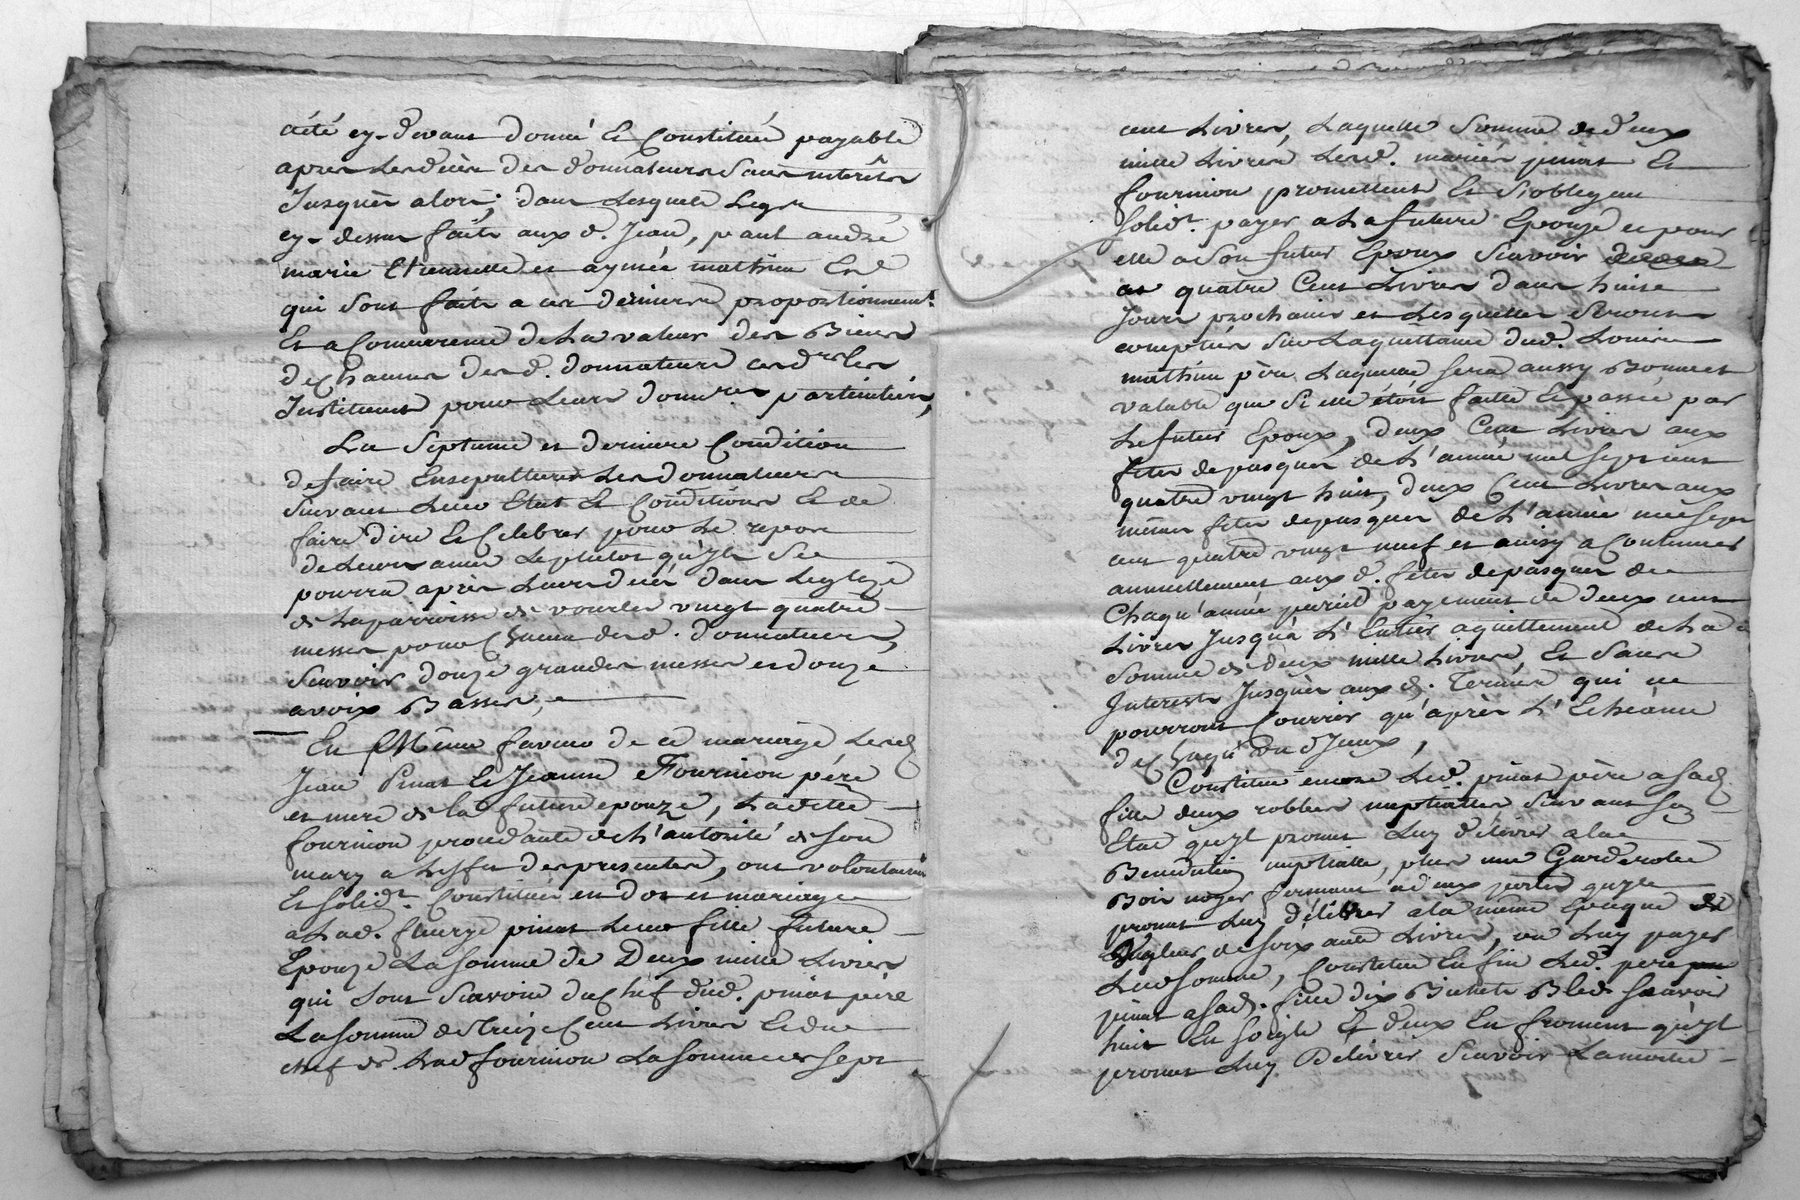 a été cy-devant donné et Constitué payable
apres Lesdéces des donnateurs sans interêts
Jusques alors; dans Lesquels Legs
cy-dessus faits aux d. Jean, paul andré
marie Etiennette et aymée mathieu
qui sont faits a ces derniers proportionnemt.
Et a Concurrence de La valeur des Biens
de Chacun desd. donnateurs
Instituant pour Leurs particuliers,
La septieme et derniere Condition
de faire Ensepulturer Les donnateurs
suivant Leur Etat Et Conditions Et de
faire dire Et Celebrer pour Le repos
de Leurs ames Le plutot qu'yl se
pourra après Leurs décés dans Leglize
de La parroisse de vourles vingt quatre
messes pour Chacun desd. donnateurs,
sçavoir douze grandes messes et douze
a voix Basses,
En Même faveur de ce mariage Lesd.
Jean Pinat Et Jeanne Fournion pére
et mere de la future epouze, Laditte
fournion procedante de L'autorité de son
mary a Leffet des presentes, ont volontairemt
Et solidt. Constitué en dot et mariage
a Lad. fleurye pinat Leur fille future
Epouze La somme de Deux mille Livres
qui sont sçavoir du Chef dud. pinat pére
La somme de treize Cent Livres Et du
chef de Lad fournion La somme de sept
cent Livres, Laquelle somme de deux
mille Livres Lesd. mariés pinat Et
fournion promettent Et s'obligent
solidt. payer a La future Epouze et pour
elle a son futur Epoux sçavoir
quatre Cent Livres dans huit
Jours prochains et Lesquelles seront
comptées sur La quittance dud. Louis
mathieu pére Laquelle sera aussy Bonne et
valable que si elle étoit faitte Et passée par
Le futur Epoux, deux Cent Livres aux
fêtes de pasques de L'année mil sept cent
quatre vingt huit, deux Cent Livres aux
mémes fêtes de pasques de L'année mil sept
cent quatre vingt neuf et ainsy a Continuer
annuellement aux d. fêtes de pasques de
Chaqu'année pareil payement de deux cent
Livres Jusqu'a L'Entier aquittement de La
somme de deux mille Livres, Et sans
Interests Jusques aux d. Termes qui ne
pourront Courrir qu'après L'Echéance
de Chaqu'un d'Jceux,
Constitue encore Led. pinat pére a sad.
fille deux robbes nuptialles suivant son
Etat qu'yl promet Luy délivrer a la
Benediction nuptialle, plus une Garderobe
Bois noyer fermant a deux portes qu'yl
promet Luy délivrer a la même Epoque
de soixante Livres, ou Luy payer
Lad somme, Constitue En fin Led. pere
pinat a sad. fille dix Bichets Bled sçavoir
huit En soigle Et deux En froment qu'yl
promet Luy Délivrer sçavoir La moitié